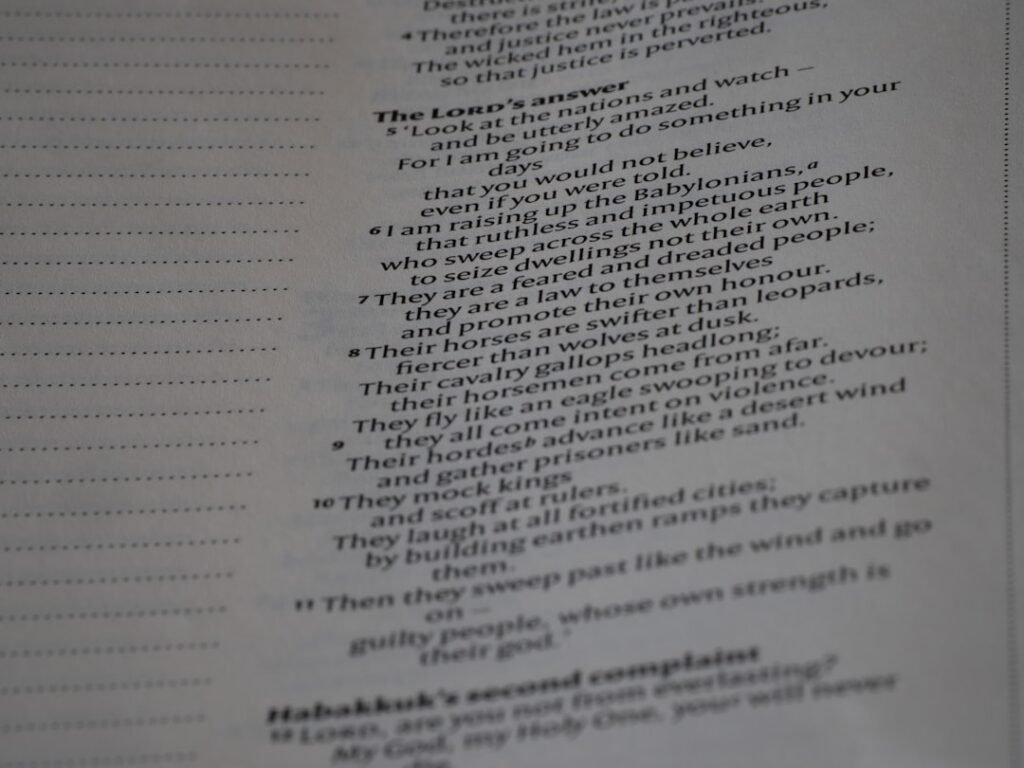 Destruct
there is strife,
4 Therefore the law is p
and justice never prevails.
The wicked hem in the righteous,
so that justice is perverted.
The LORD's answer
5 'Look at the nations and watch –
and be utterly amazed.
For I am going to do something in your
days
that you would not believe,
even if you were told.
6 I am raising up the Babylonians, a
that ruthless and impetuous people,
who sweep across the whole earth
to seize dwellings not their own.
7 They are a feared and dreaded people;
they are a law to themselves
and promote their own honour.
8 Their horses are swifter than leopards,
fiercer than wolves at dusk.
Their cavalry gallops headlong;
their horsemen come from afar.
They fly like an eagle swooping to devour;
9 they all come intent on violence.
Their hordes b advance like a desert wind
and gather prisoners like sand.
10 They mock kings
and scoff at rulers.
They laugh at all fortified cities;
by building earthen ramps they capture
them.
11 Then they sweep past like the wind and go
on –
guilty people, whose own strength is
their god.'
Habakkuk's second complaint
12 LORD, are you not from everlasting?
My God, my Holy One, you will never
die